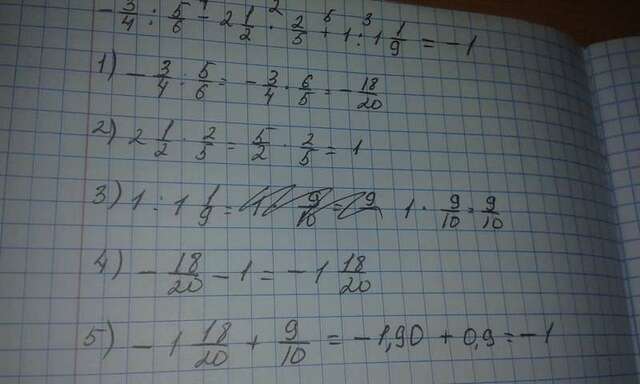 - 3/4 : 5/6 - 2 1/2 · 2/5 + 1 : 1 1/9 = -1
1) - 3/4 : 5/6 = - 3/4 · 6/5 = - 18/20
2) 2 1/2 · 2/5 = 5/2 · 2/5 = 1
3) 1 : 1 1/9 = 1 · 9/10 = 9/10
4) - 18/20 - 1 = - 1 18/20
5) - 1 18/20 + 9/10 = -1,90 + 0,9 = -1